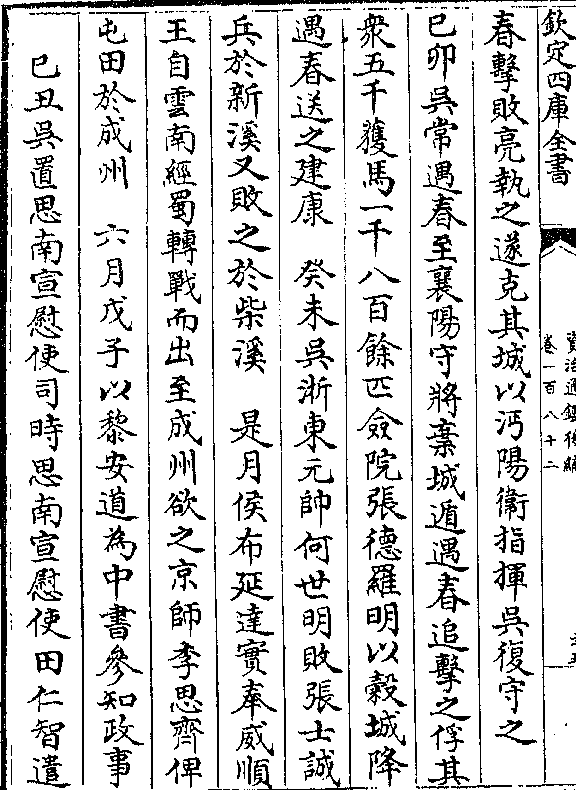 欽定四庫全書
資治通鑑後編
卷一百八十二
春擊敗亮執之遂克其城以沔陽衞指揮吳復守之
己卯吳常遇春至襄陽守將棄城遁遇春追擊之俘其
衆五千獲馬一千八百餘匹僉院張德羅明以穀城降
遇春送之建康　癸未吳浙東元帥何世明敗張士誠
兵於新溪又敗之於柴溪　是月侯布延達實奉威順
王自雲南經蜀轉戰而出至成州欲之京師李思齊俾
屯田於成州　六月戊子以黎安道為中書參知政事
己丑吳置思南宣慰使司時思南宣慰使田仁智遣